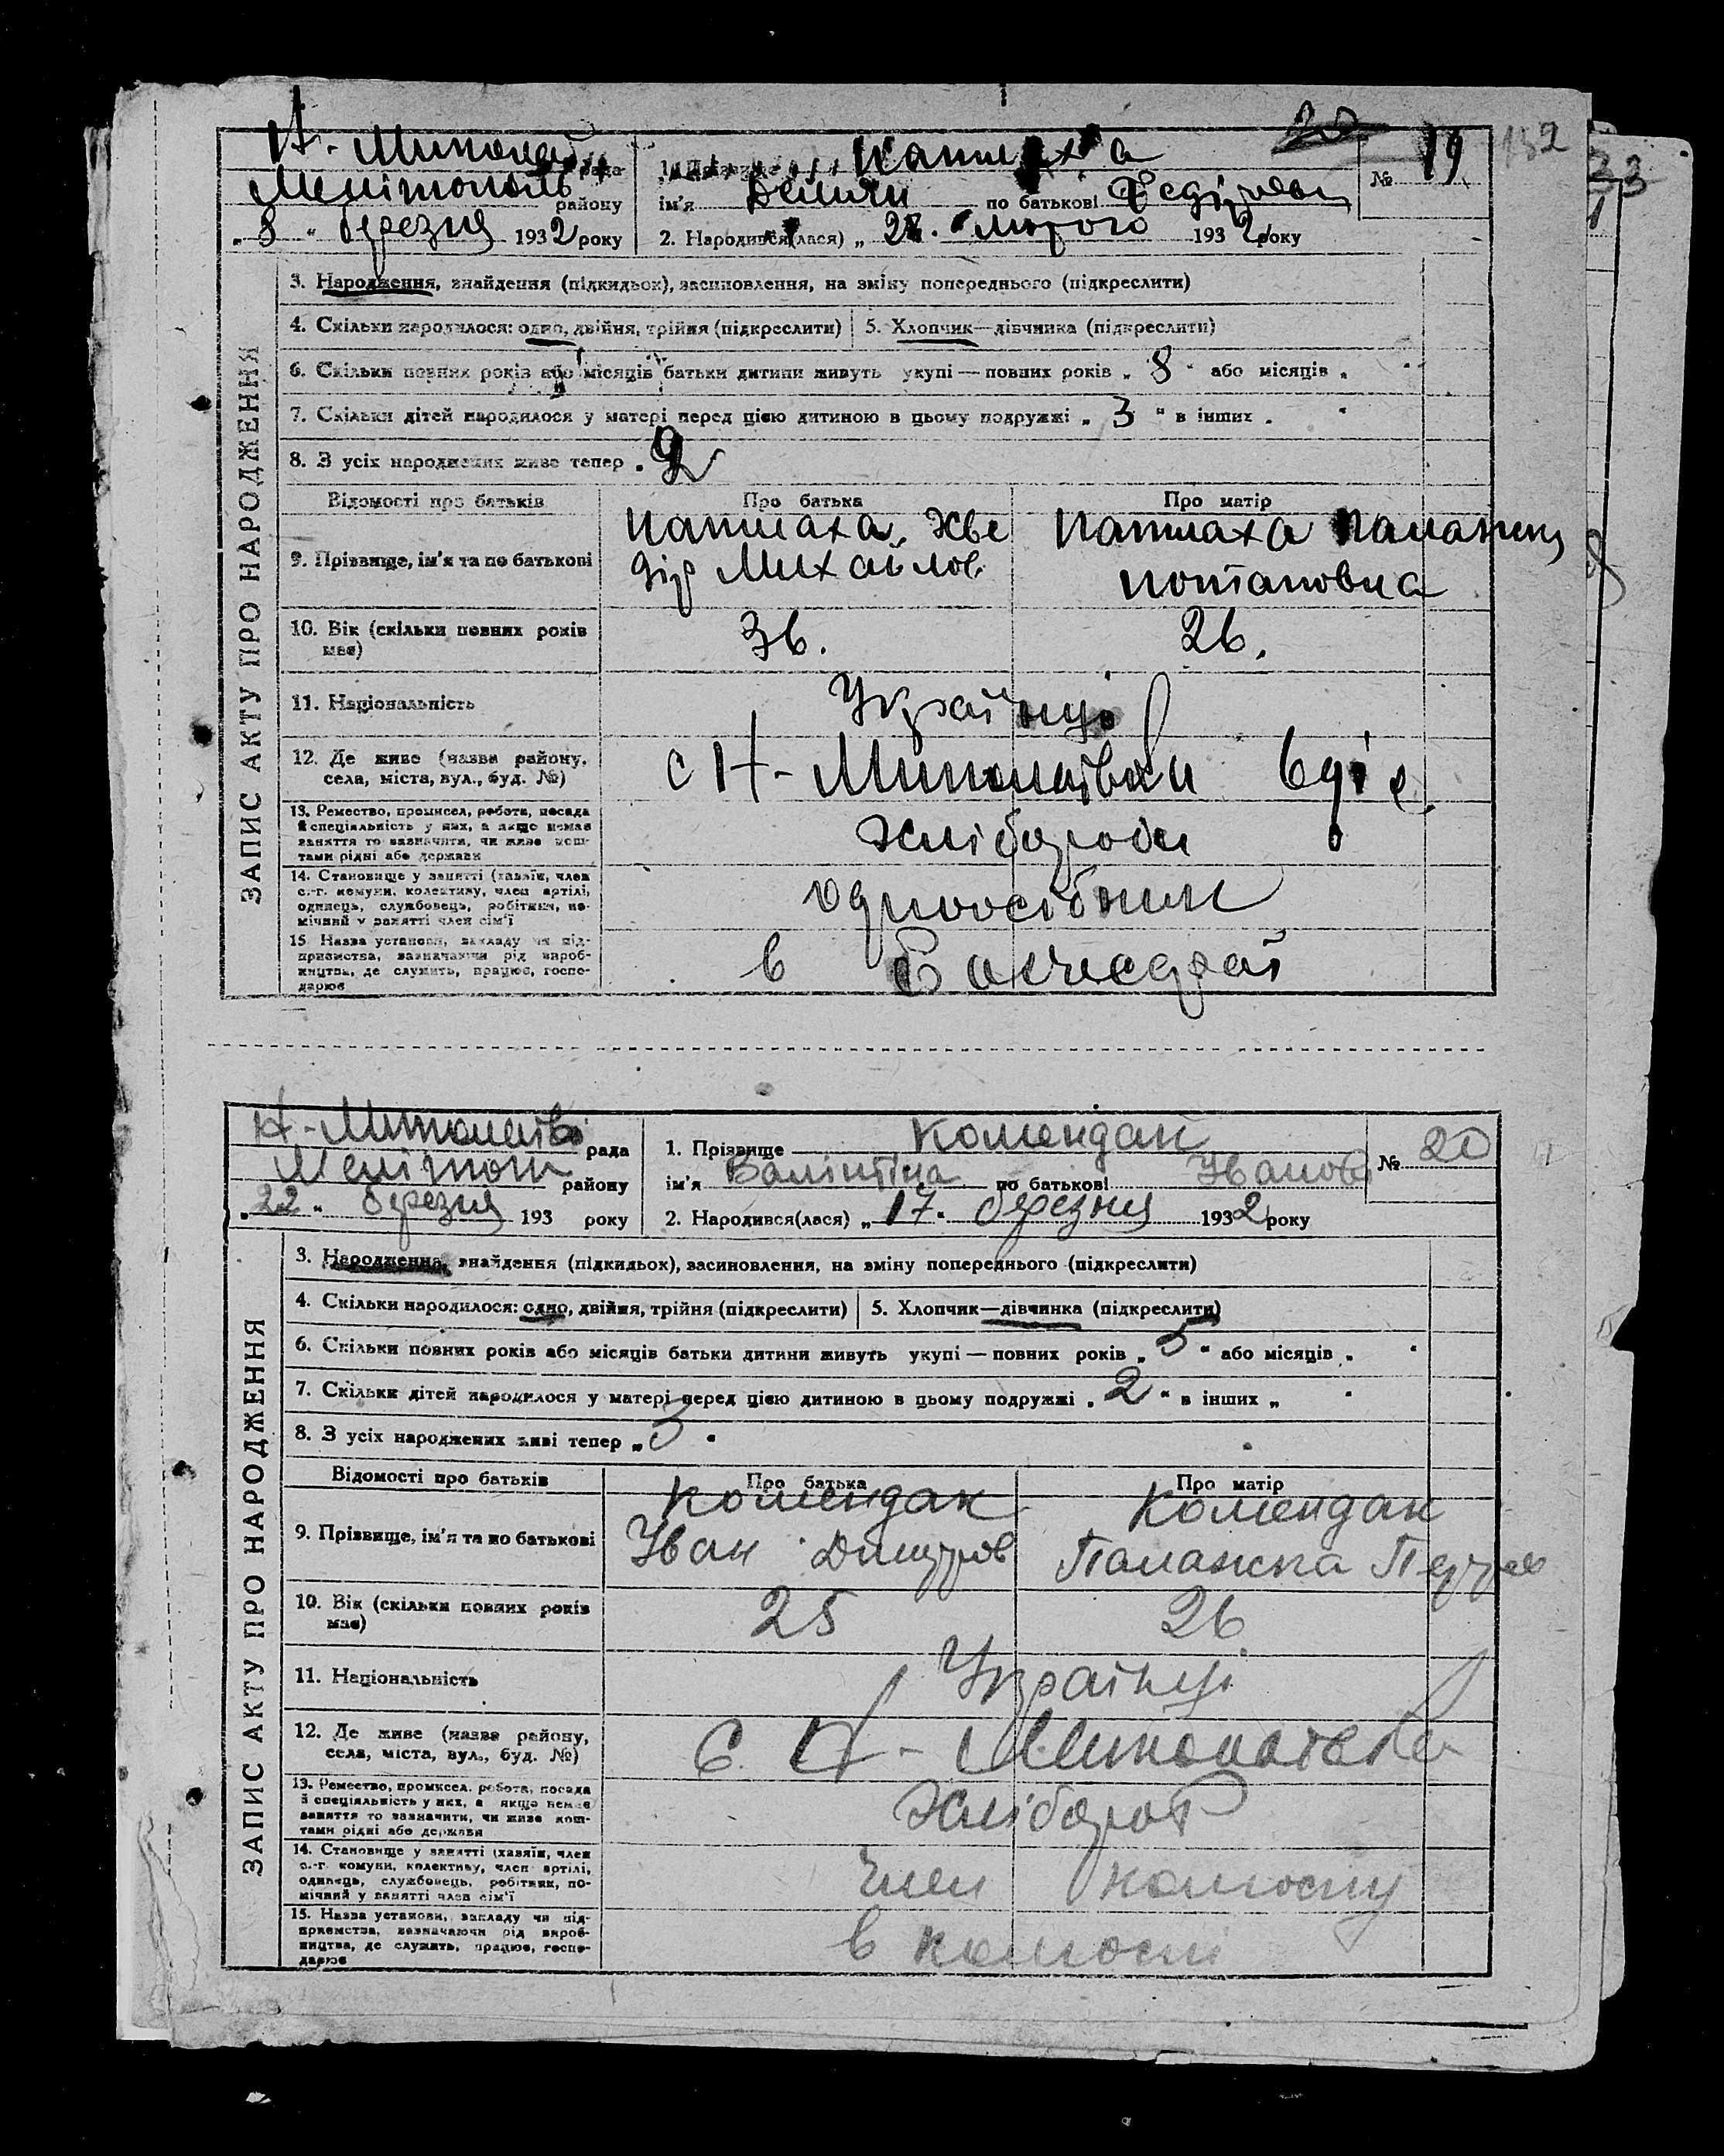 Н.-Миколай рада
Мелітополь району
„ 8 “ березня 1932 року
1. Прізвище Капшаха
ім'я Демян по батькові
2. Народився(лася) „ 28. “ лютого 1932 року
20
№ 19
152
33
ЗАПИС АКТУ ПРО НАРОДЖЕННЯ
3. Народження, знайдення (підкидьок), засиновлення, на зміну попереднього (підкреслити)
4. Скільки народилося: одно, двійня, трійня (підкреслити)
5. Хлопчик—дівчинка (підкреслити)
6. Скільки повних років або місяців батьки дитини живуть укупі — повних років „ 8 “ або місяців „ “
7. Скільки дітей народилося у матері перед цією дитиною в цьому подружжі „ 3 “ в інших „ “
8. З усіх народжених живе тепер „ 2
Відомості про батьків
Про батька
Про матір
9. Прізвище, ім'я та по батькові
Капшаха Хве
дір Михайлов.
Капшаха
Потаповна
10. Вік (скільки повних років
має)
36.
26.
11. Національність
Українці
12. Де живе (назва району,
села, міста, вул., буд. №)
с Н-Миколаївки
13. Ремество, промисел, робота, посада
й спеціяльність у них, а якщо немає
заняття то зазначити, чи живе кош-
тами рідні або держави
Хлібороби
14. Становище у занятті (хазяїн, член
с.-г. комуни, колективу, член артілі,
одинець, службовець, робітник, по-
мічний у занятті член сім'ї
одноосібник
15. Назва установи, закладу чи під-
приємства, зазначаючи рід вироб-
ництва, де служить, працює, госпо-
дарює
в
Н.-Миколаїв рада
Меліт району
„ 22 “ березня 193 року
1. Прізвище Комендак
ім'я Валінтіна по батькові Іванов
2. Народився(лася) „ 17. “ березня 1932 року
№ 20
ЗАПИС АКТУ ПРО НАРОДЖЕННЯ
3. Народження, знайдення (підкидьок), засиновлення, на зміну попереднього (підкреслити)
4. Скільки народилося: одно, двійня, трійня (підкреслити)
5. Хлопчик—дівчинка (підкреслити)
6. Скільки повних років або місяців батьки дитини живуть укупі — повних років „ 5 “ або місяців „ “
7. Скільки дітей народилося у матері перед цією дитиною в цьому подружжі „ 2 “ в інших „ “
8. З усіх народжених живі тепер „ 3 “
Відомості про батьків
Про батька
Про матір
9. Прізвище, ім'я та по батькові
Комендак
Іван Дмитров
Комендак
Палажка Петров
10. Вік (скільки повних років
має)
25
26.
11. Національність
Українці
12. Де живе (назва району,
села, міста, вул., буд. №)
с. Н-Миколаєвка
13. Ремество, промисел, робота, посада
й спеціяльність у них, а якщо немає
заняття то зазначити, чи живе кош-
тами рідні або держави
Хлібороб
14. Становище у занятті (хазяїн, член
с.-г. комуни, колективу, член артілі,
одинець, службовець, робітник, по-
мічний у занятті член сім'ї
Член колгоспу
15. Назва установи, закладу чи під-
приємства, зазначаючи рід вироб-
ництва, де служить, працює, госпо-
дарює
в колгоспі